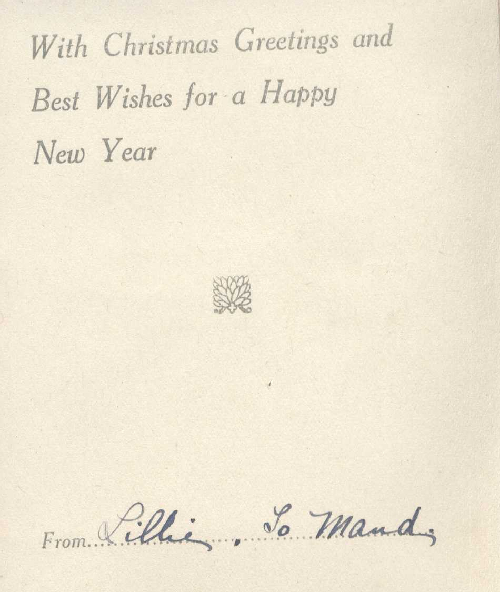 With Christmas Greetings and
Best Wishes for a Happy
New Year
From Lillie, To Maud.